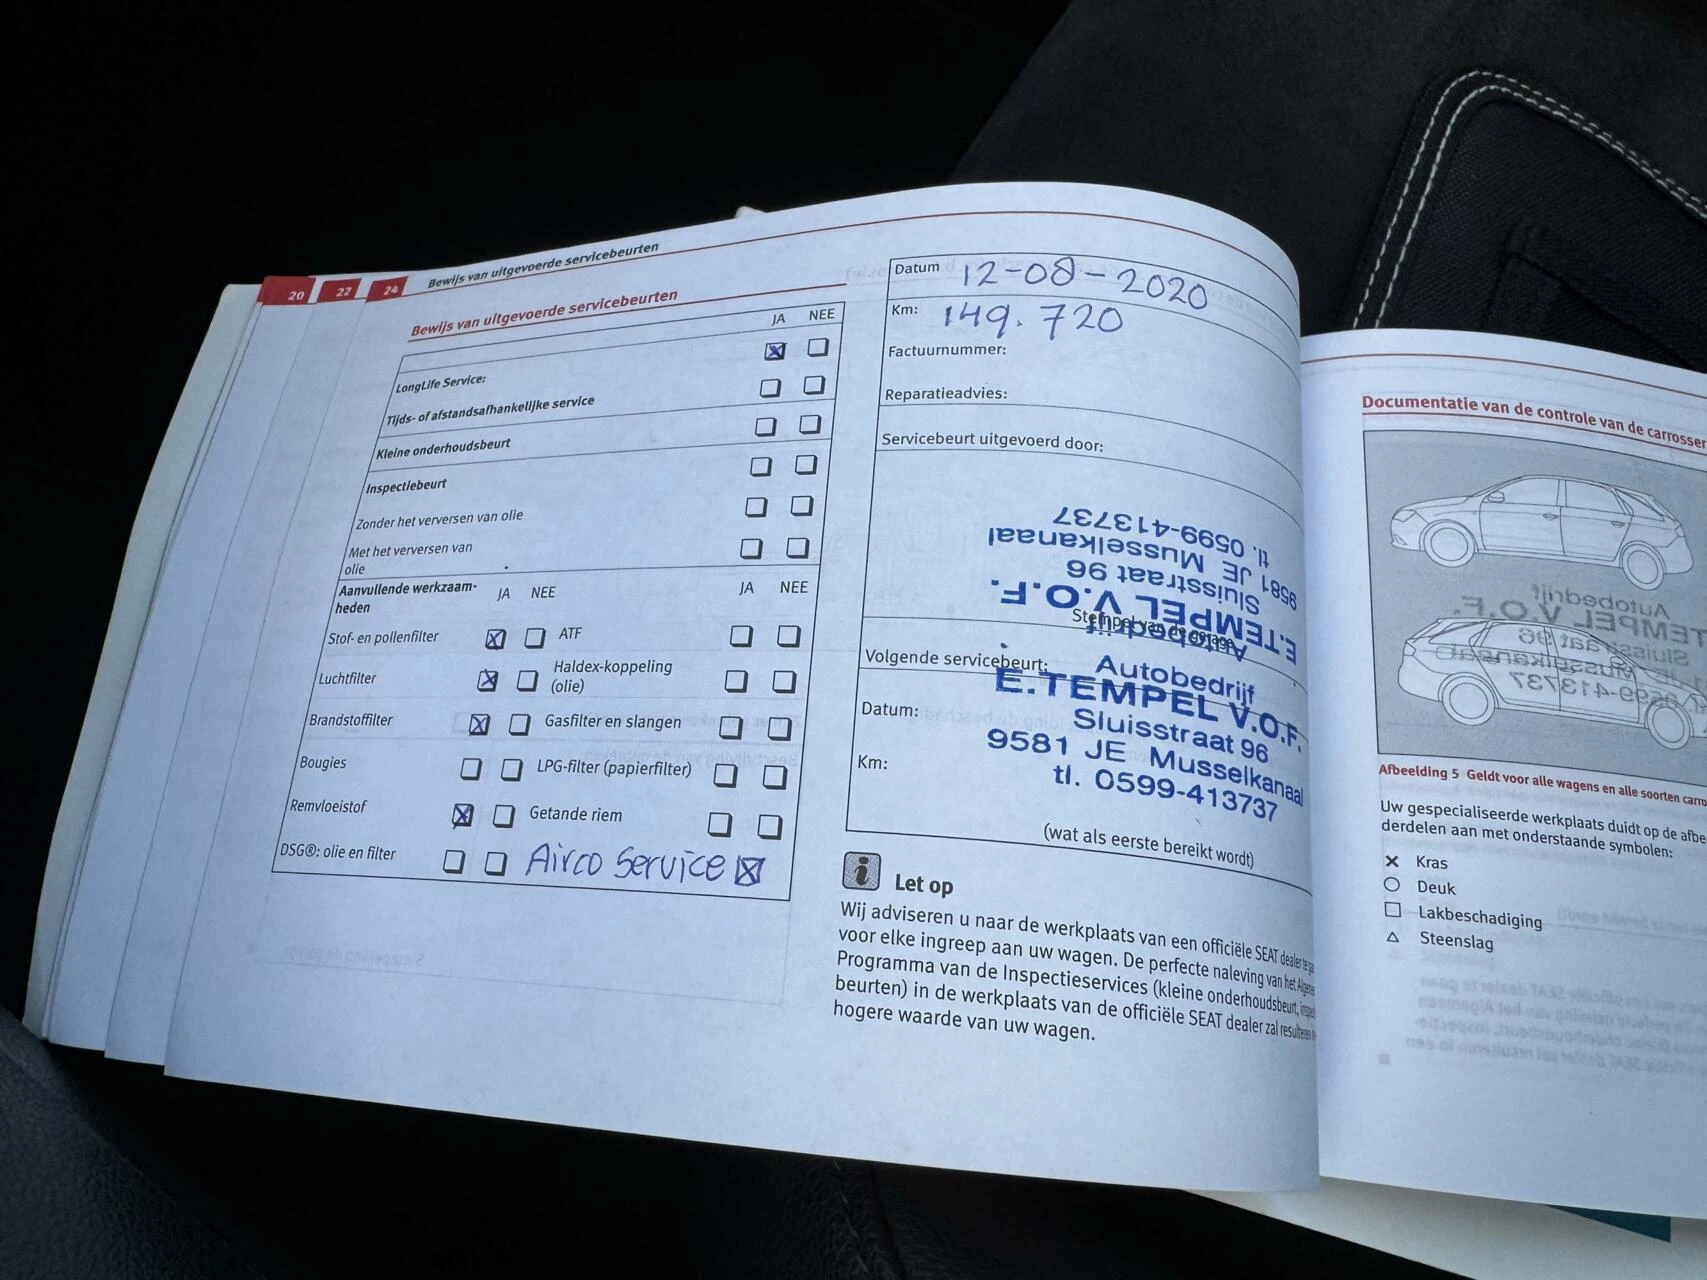 20
22
24
Bewijs van uitgevoerde servicebeurten
Bewijs van uitgevoerde servicebeurten
JA NEE
LongLife Service:
Tijds- of afstandsafhankelijke service
Kleine onderhoudsbeurt
Inspectiebeurt
Zonder het verversen van olie
Met het verversen van
olie
Aanvullende werkzaam-
heden
JA NEE
JA NEE
Stof- en pollenfilter
ATF
Luchtfilter
Haldex-koppeling
(olie)
Brandstoffilter
Gasfilter en slangen
Bougies
LPG-filter (papierfilter)
Remvloeistof
Getande riem
DSG®: olie en filter
Airco Service
Datum 12-08-2020
Km: 149.720
Factuurnummer:
Reparatieadvies:
Servicebeurt uitgevoerd door:
Autobedrijf
E.TEMPEL V.O.F.
Sluisstraat 96
9581 JE Musselkanaal
tl. 0599-413737
Stempel van de garage
Volgende servicebeurt:
Autobedrijf
E.TEMPEL V.O.F.
Sluisstraat 96
9581 JE Musselkanaal
tl. 0599-413737
Datum:
Km:
(wat als eerste bereikt wordt)
Let op
Wij adviseren u naar de werkplaats van een officiële SEAT dealer te
voor elke ingreep aan uw wagen. De perfecte naleving van het
Programma van de Inspectieservices (kleine onderhoudsbeurt,
beurten) in de werkplaats van de officiële SEAT dealer zal resulteren
hogere waarde van uw wagen.
Documentatie van de controle van de
Afbeelding 5 Geldt voor alle wagens en alle soorten
Uw gespecialiseerde werkplaats duidt op de
derdelen aan met onderstaande symbolen:
Kras
Deuk
Lakbeschadiging
Steenslag